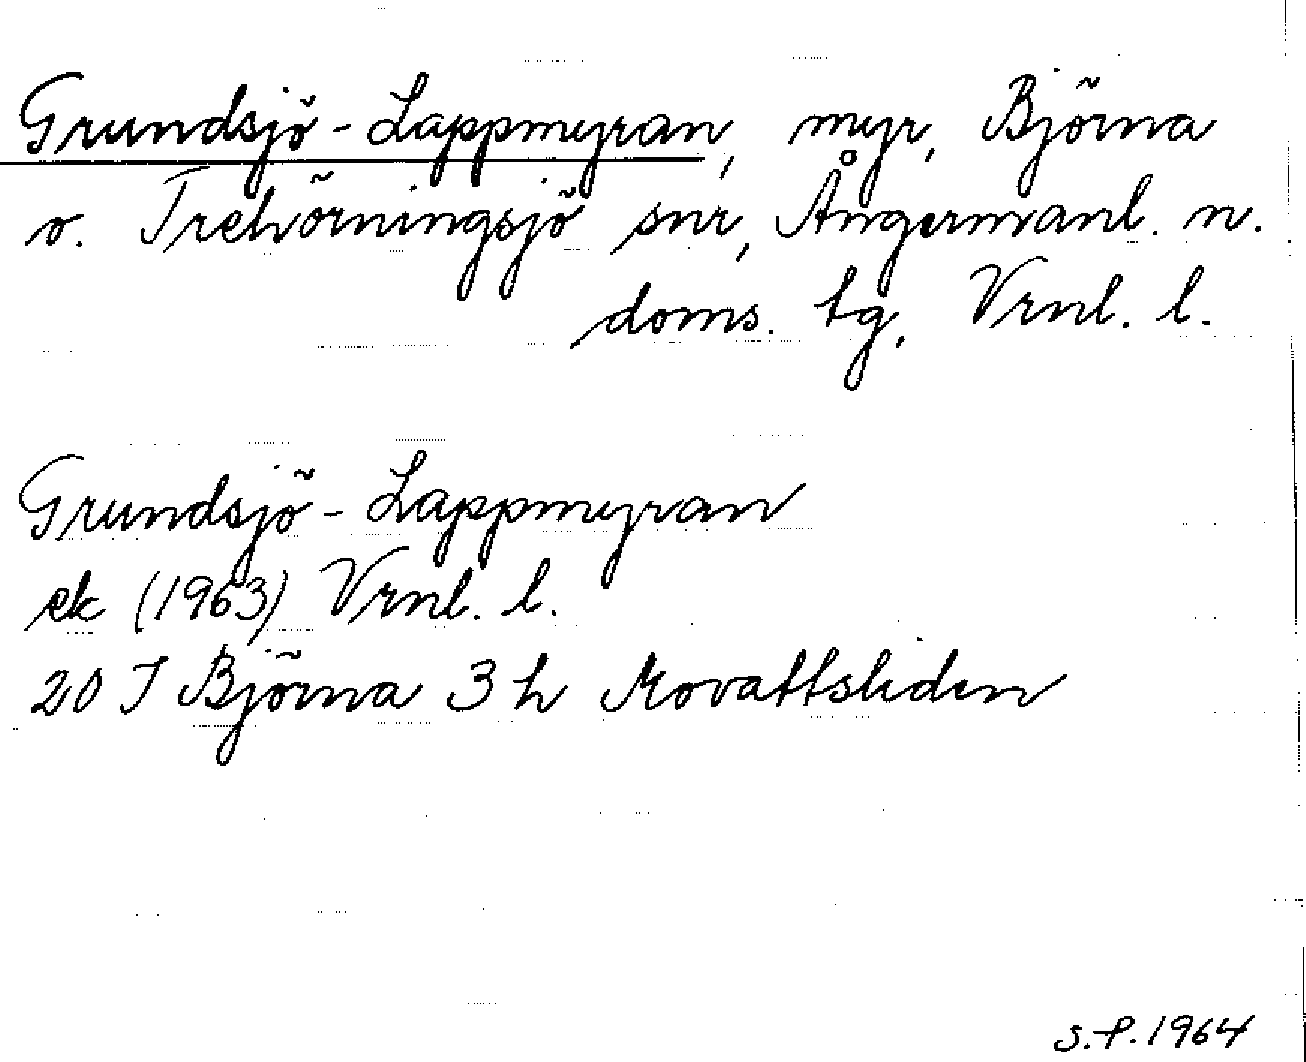 Grundsjö-Lappmyran, myr, Björna
o. Trehörningsjö snr, Ångermanl. n.
doms. tg, Vrnl. l.
Grundsjö-Lappmyran
ek (1963) Vrnl. l.
20 J Björna 3 h Movattsliden
S.P. 1964